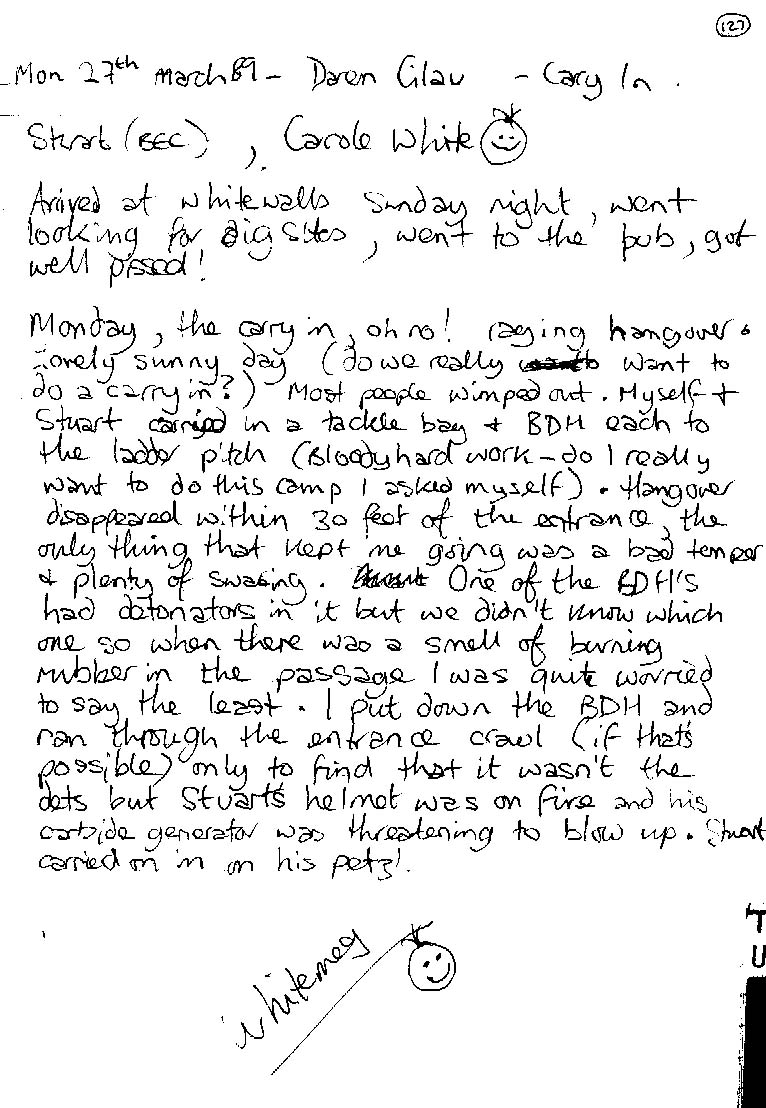 127
Mon 27th March 89 - Daren Cilau - Carry In.
Stuart (BEC), Carole White
Arived at Whitewalls Sunday night, went
looking for dig sites, went to the pub, got
well pissed!
Monday, the carry in, oh no! raging hangover &
lovely sunny day (do we really want to
do a carry in?) Most people wimped out. Myself +
Stuart carried in a tackle bag + BDH each to
the ladder pitch (Bloody hard work - do I really
want to do this camp I asked myself). Hangover
disappeared within 30 feet of the entrance, the
only thing that kept me going was a bad temper
& plenty of swearing. One of the BDH's
had detonators in it but we didn't know which
one so when there was a smell of burning
rubber in the passage I was quite worried
to say the least. I put down the BDH and
ran through the entrance crawl (if that's
possible) only to find that it wasn't the
dets but Stuart's helmet was on fire and his
carbide generator was threatening to blow up. Stuart
carried on in on his petzl.
Whitemeg
T
U